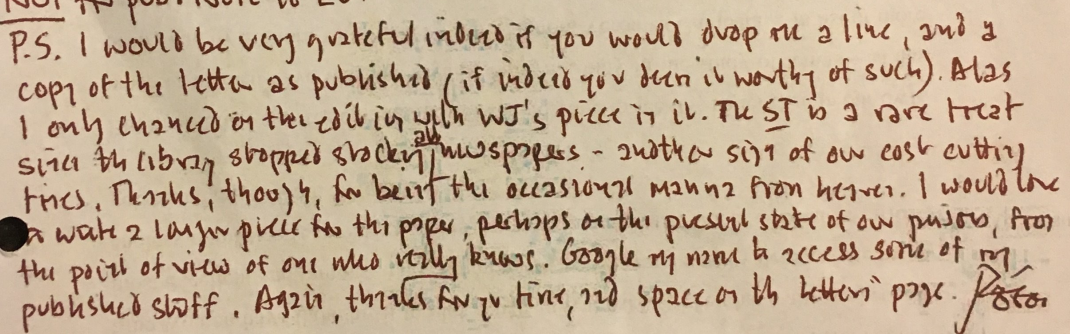 P.S. I would be very grateful indeed if you would drop me a line, and a
copy of the letter as published (if indeed you deem it worthy of such). Alas
I only chanced on the edition with WJ's piece in it. The ST is a rare treat
since the library stopped stocking all newspapers - another sign of our cost cutting
times. Thanks, though, for being the occasional manna from heaven. I would love
to write a longer piece for the paper, perhaps on the present state of our prisons, from
the point of view of one who really knows. Google my name to access some of my
published stuff. Again, thanks for yr time, and space on the letters' page.